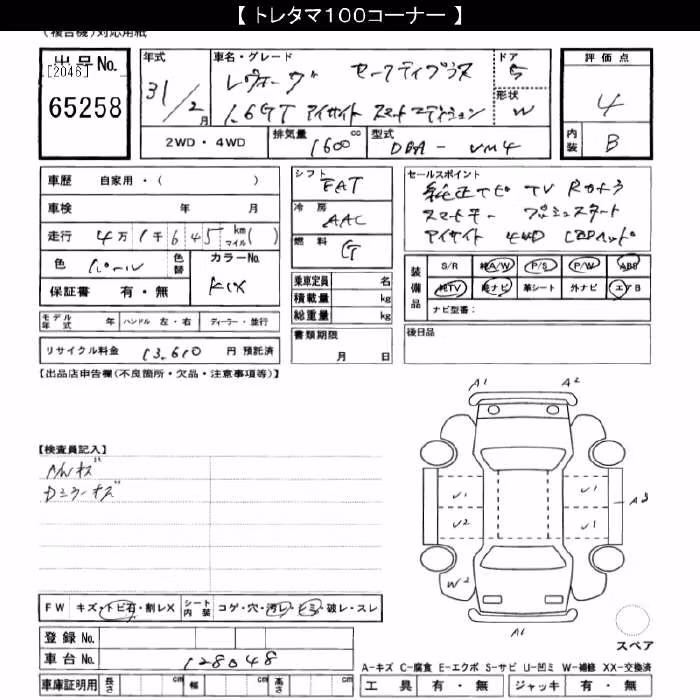 【トレタマ100コーナー】
(複合機)対応用紙
出品No.
[2046]
65258
年式
31/2月
車名・グレード
レヴォーグ セーフティプラス
1.6GT アイサイト スマートエディション
ドア
5
形状
W
評価点
4
内装
B
2WD・4WD
排気量
1600cc
型式
DBA-VM4
車歴 自家用・( )
車検 年 月
走行 4万1千645kmマイル( )
色 パール
色替
カラーNo.
K1X
保証書 有・無
モデル年式 年 ハンドル 左・右 ディーラー・並行
リサイクル料金 13,610 円 預託済
シフト
FAT
冷房
AAC
燃料
G
乗車定員 名
積載量 kg
総重量 kg
書類期限
月 日
セールスポイント
純正ナビ TV Rカメラ
スマートキー プッシュスタート
アイサイト 4WD LEDヘッド
装備品
S/R 純A/W P/S P/W ABS
純TV 純ナビ 革シート 外ナビ エアB
ナビ型番:
後日品
【出品店申告欄(不良箇所・欠品・注意事項等)】
【検査員記入】
A/Wキズ
Dミラーキズ
A1 A2
U1 U1
A3
U2 U1
W2
A1
スペア
FW キズ・トビ有・割レX
シート内装 コゲ・穴・汚レ・ヒミ・破レ・スレ
登録No.
車台No. 128048
車庫証明用 長さ cm 幅 cm 高さ cm
A-キズ C-腐食 E-エクボ S-サビ U-凹ミ W-補修 XX-交換済
工具 有・無 ジャッキ 有・無